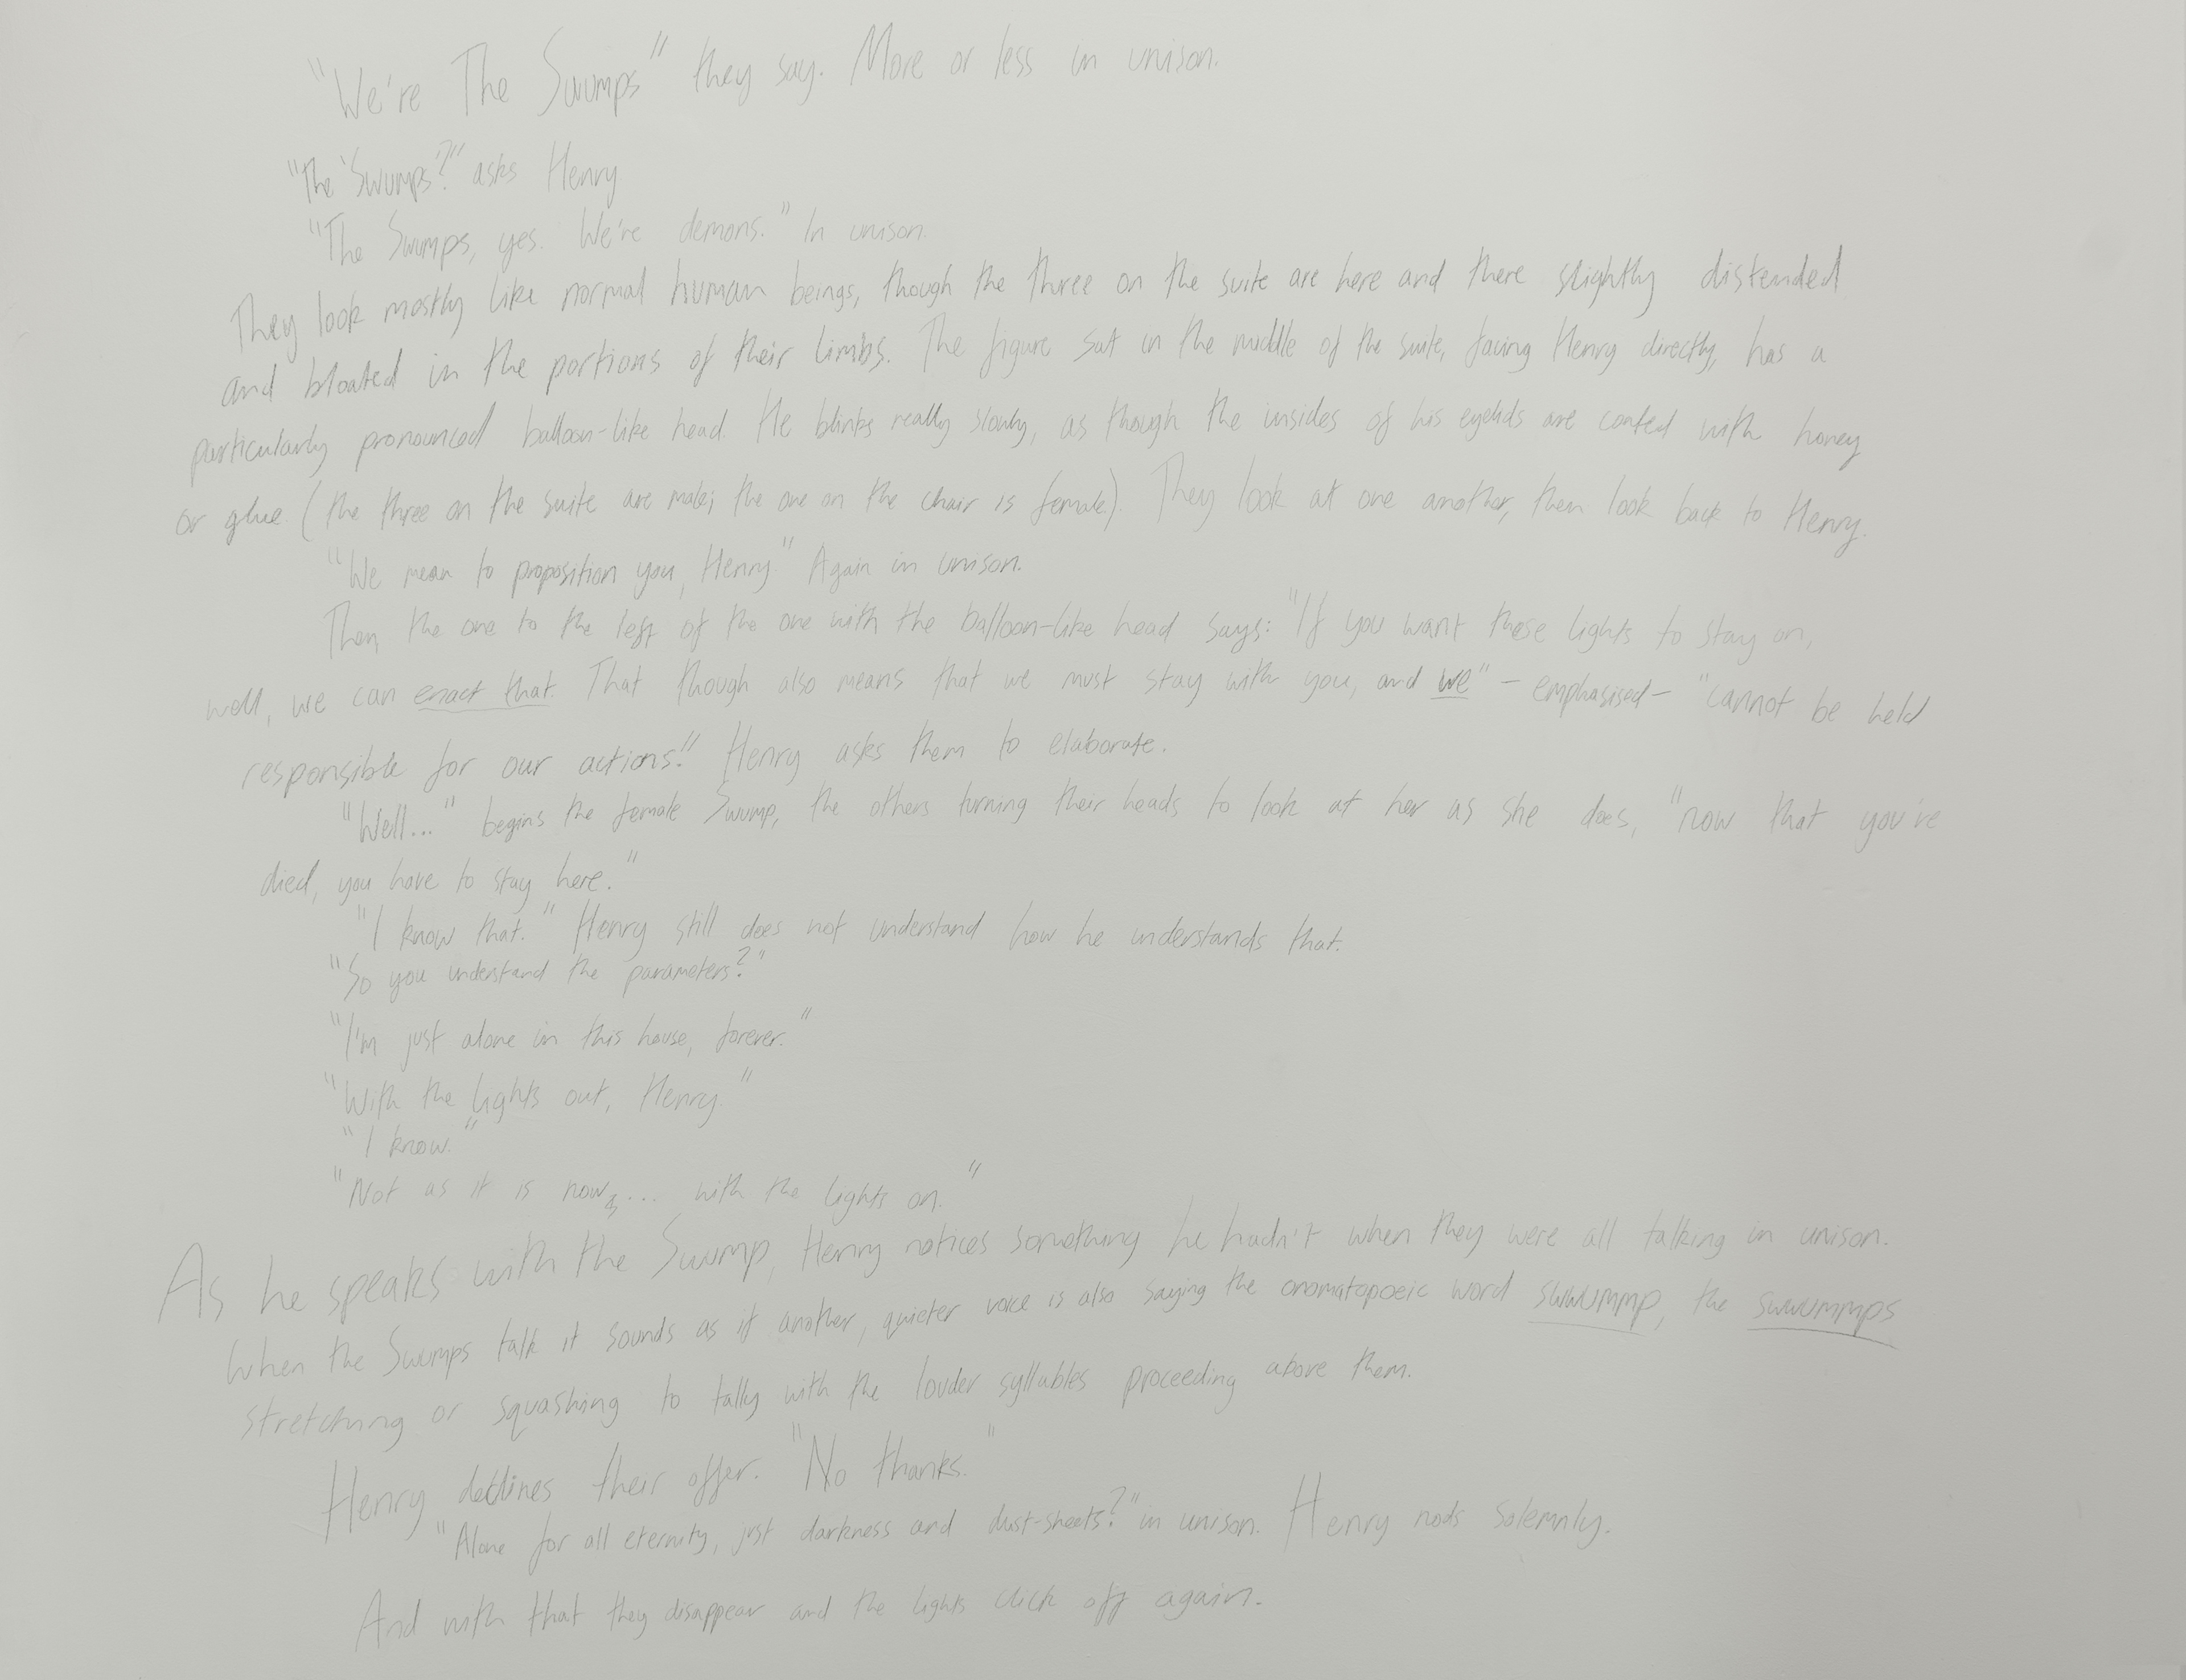 "We're The Swumps" they say. More or less in unison.
"The 'Swumps'?" asks Henry
"The Swumps, yes. We're demons." In unison.
They look mostly like normal human beings, though the three on the suite are here and there slightly distended
and bloated in the portions of their limbs. The figure sat in the middle of the suite, facing Henry directly, has a
particularly pronounced balloon-like head. He blinks really slowly, as though the insides of his eyelids are coated with honey
or glue (the three on the suite are male; the one on the chair is female). They look at one another, then look back to Henry.
"We mean to proposition you, Henry." Again in unison.
Then the one to the left of the one with the balloon-like head says: "If you want these lights to stay on,
well, we can enact that. That though also means that we must stay with you, and we" – emphasised – "cannot be held
responsible for our actions." Henry asks them to elaborate.
"Well..." begins the female Swump, the others turning their heads to look at her as she does, "now that you're
died, you have to stay here."
"I know that." Henry still does not understand how he understands that.
"So you understand the parameters?"
"I'm just alone in this house, forever."
"With the lights out, Henry."
"I know."
"Not as it is now,... with the lights on."
As he speaks with the Swump, Henry notices something he hadn't when they were all talking in unison.
When the Swumps talk it sounds as if another, quieter voice is also saying the onomatopoeic word swwummp, the swwummps
stretching or squashing to tally with the louder syllables proceeding above them.
Henry declines their offer. "No thanks."
"Alone for all eternity, just darkness and dust-sheets?" in unison. Henry nods solemnly.
And with that they disappear and the lights click off again.